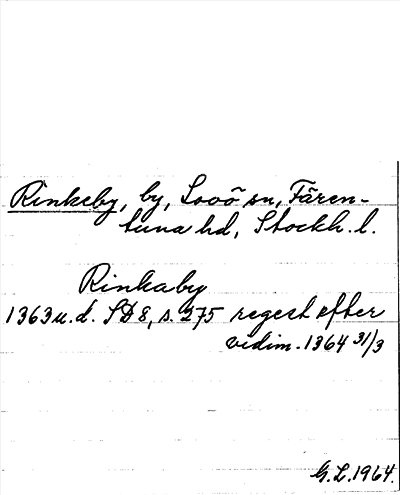 Rinkeby, by, Lovö sn, Fären-
tuna hd, Stockh. l.
Rinkaby
1363 u.d. SD 8, s. 275 regest efter
vidim. 1364 31/3
G.L. 1964.